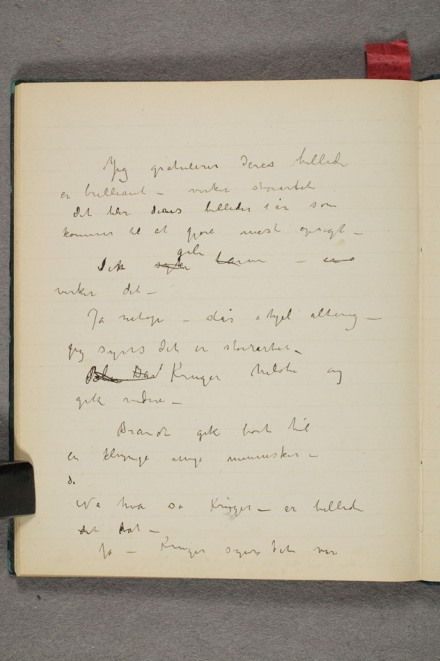 Jeg gratulerer Deres billede
er brilliant – virker storartet
det blir deres billede i år som
kommer til at gjøre mest opsigt –
gule
virker det –
Ja netop – alting –
jeg synes det er storartet –
Krüger hilste og
gik videre –
Brandt gik bort til
en klynge unge mennesker –
Na hva sa Krüger – er billedet
Ja – Krüger synes det var